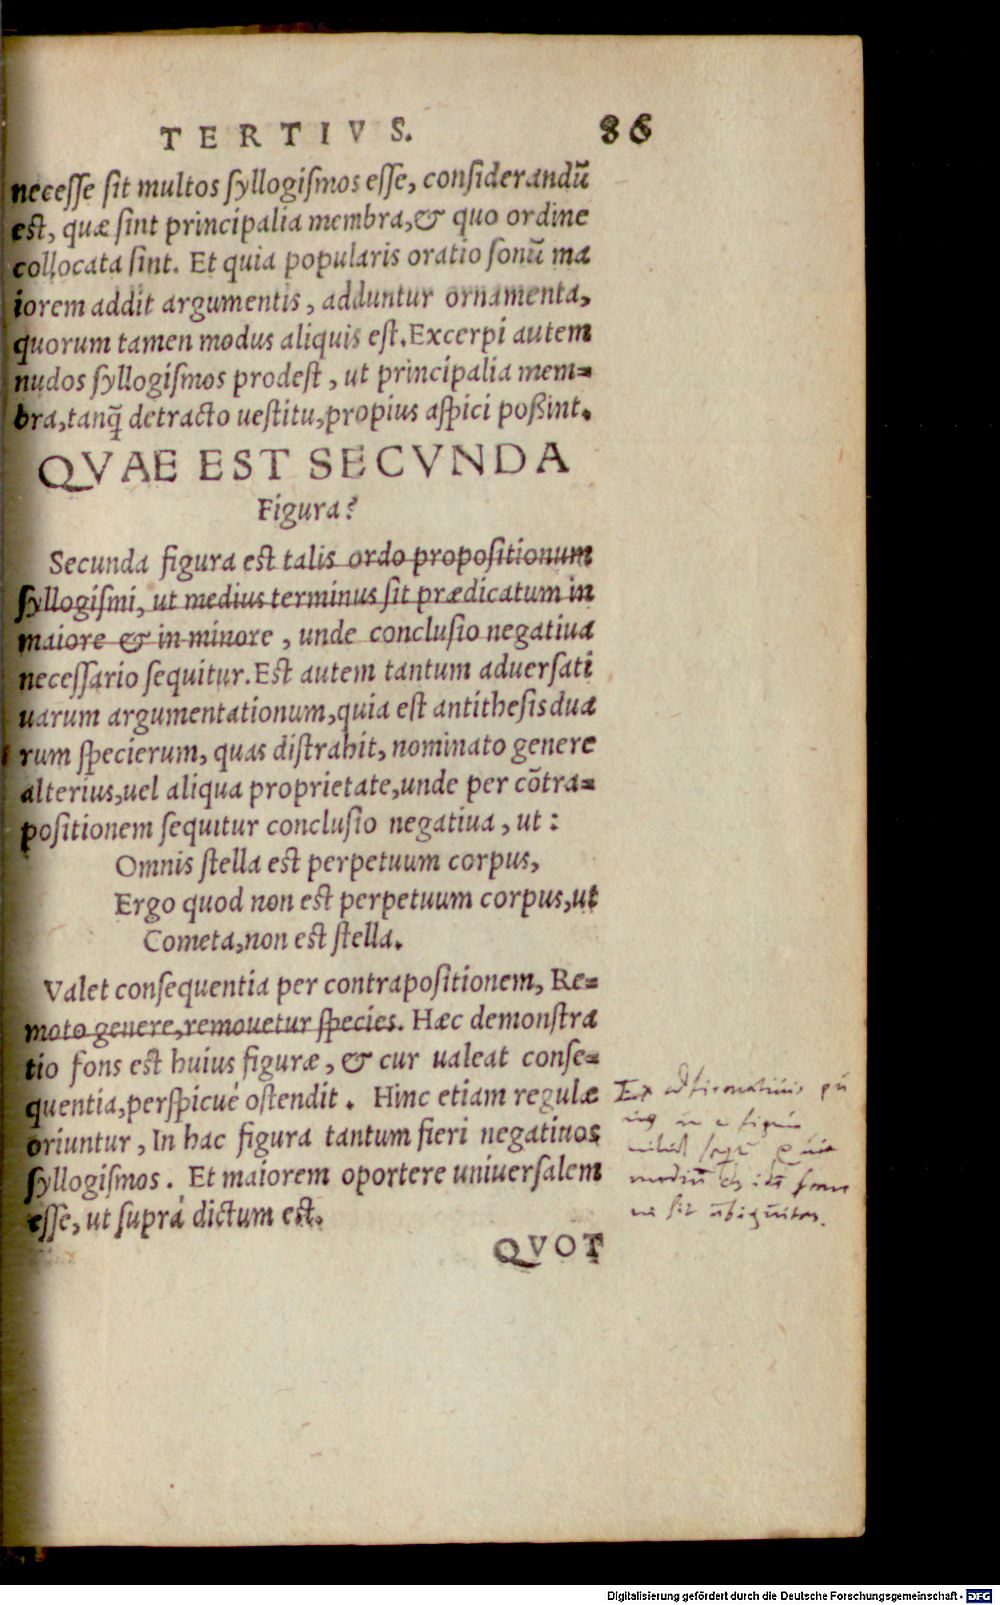 TERTIVS. 86
necesse sit multos syllogismos esse, considerandũ
est, quæ sint principalia membra, & quo ordine
collocata sint. Et quia popularis oratio sonũ ma
iorem addit argumentis, adduntur ornamenta,
quorum tamen modus aliquis est. Excerpi autem
nudos syllogismos prodest, ut principalia mem=
bra, tanq̃ detracto uestitu, propius aspici poßint.
QVAE EST SECVNDA
Figura?
Secunda figura est talis ordo propositionum
syllogismi, ut medius terminus sit prædicatum in
maiore & in minore, unde conclusio negatiua
necessario sequitur. Est autem tantum aduersati
uarum argumentationum, quia est antithesis dua
rum specierum, quas distrahit, nominato genere
alterius, uel aliqua proprietate, unde per cõtra=
positionem sequitur conclusio negatiua, ut:
Omnis stella est perpetuum corpus,
Ergo quod non est perpetuum corpus, ut
Cometa, non est stella.
Valet consequentia per contrapositionem, Re=
moto genere, remouetur species. Hæc demonstra
tio fons est huius figuræ, & cur ualeat conse=
quentia, perspicué ostendit. Hinc etiam regulæ
oriuntur, In hac figura tantum fieri negatiuos
syllogismos. Et maiorem oportere uniuersalem
esse, ut suprá dictum est.
QVOT
Ex
sit
Digitalisierung gefördert durch die Deutsche Forschungsgemeinschaft - DFG